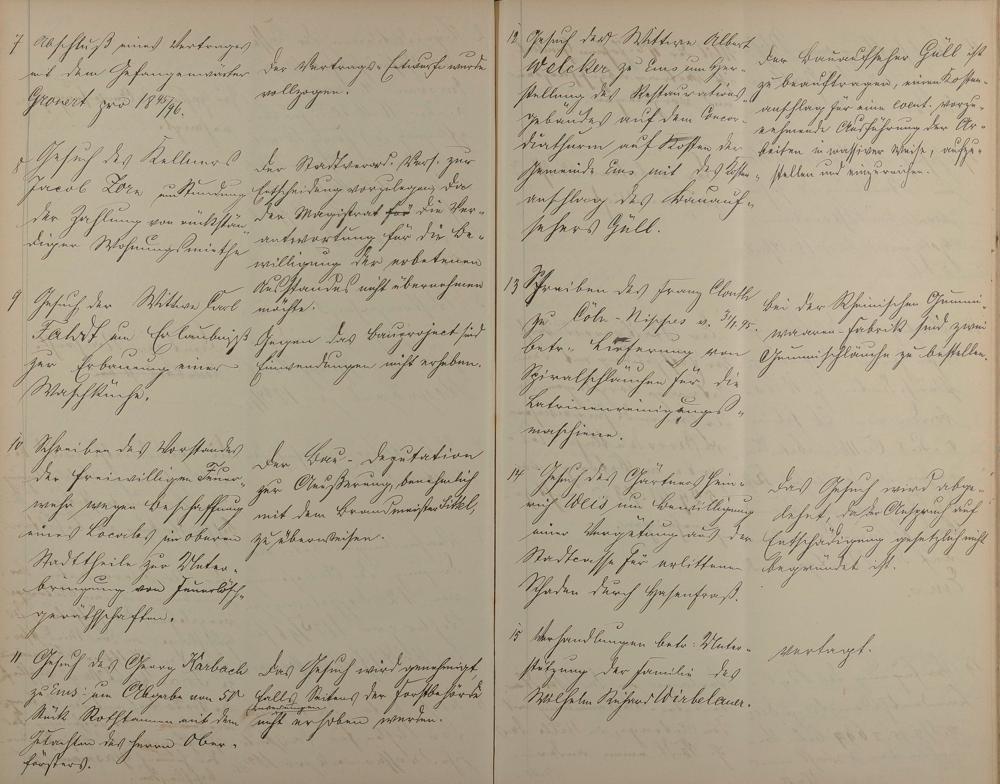 7 Abschluß eines Vertrages
mit dem Gefangenwärter
Gronert pro 1895/96.
Der Vertrags-Entwurf wurde
vollzogen.
8 Gesuch des Kellners
Jacob Zorn um Stundung
der Zahlung von rückstän-
diger Wohnungsmiethe
Der Stadtverord. Vers. zur
Entscheidung vorzulegen, da
der Magistrat für die Ver-
antwortung für die Be-
willigung der erbetenen
Ausstandes nicht übernehmen
möchte.
9 Gesuch der Wittwe Carl
um Erlaubniß
zur Erbauung einer
Waschküche.
Gegen das Bauproject sind
Einwendungen nicht erheben.
10 Schreiben des Vorstandes
der freiwilligen Feuer-
wehr wegen Beschaffung
eines Locales im oberen
Stadttheile zur Unter-
bringung von Feuerlösch-
geräthschaften.
Der Bau-Deputation
zur Aeußerung, benehmlich
mit dem Brandmeister
zu überweisen.
11 Gesuch des Georg Karbach
zu Ems um Abgabe von 50
Stück Rothtannen mit dem
Gutachten des Herrn Ober-
försters.
Das Gesuch wird genehmigt,
falls Seitens der Forstbehörde
Einwendungen
nicht erhoben werden.
12 Gesuch der Wittwe Albert
Welcker zu Ems um Her-
stellung des Restaurations-
gebäudes auf dem Concor-
diathurm auf Kosten der
Gemeinde Ems mit des Kosten-
anschlag des Bauauf-
sehers Güll.
Der Bauaufseher Güll ist
zu beauftragen, einen Kosten-
anschlag für eine event. vorzu-
nehmende Ausführung der Ar-
beiten in massiver Weise, aufzu-
stellen und einzureichen.
13 Schreiben des Franz Clouth
zu Cöln-Nippes v. 31/1 95.
betr. Lieferung von
Spiralschläuchen für die
Latrinenreinigungs-
maschiene.
Bei der Rheinischen Gummi-
waaren-Fabrik sind zwei
Gummischläuche zu bestellen.
14 Gesuch des Gärtners Hein-
rich Weis um Bewilligung
einer Vergütung aus der
Stadtcasse für erlittenen
Schaden durch Hasenfraß.
Das Gesuch wird abge-
lehnt, da der Anspruch auf
Entschädigung gesetzlich nicht
begründet ist.
15 Verhandlungen betr. Unter-
stützung der Familie des
Wilhelm Richard Wirbelauer.
vertagt.